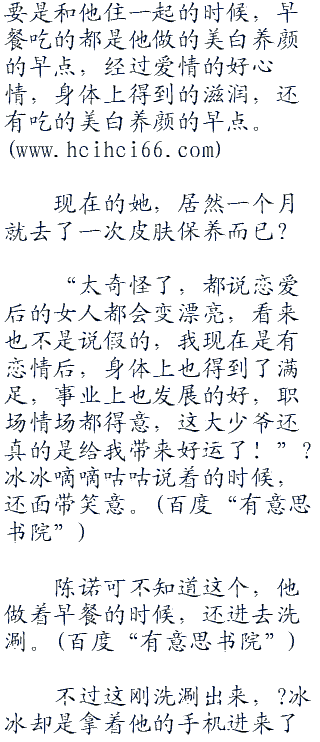 要是和他住一起的时候，早
餐吃的都是他做的美白养颜
的早点，经过爱情的好心
情，身体上得到的滋润，还
有吃的美白养颜的早点。
(www.hcihci66.com)
现在的她，居然一个月
就去了一次皮肤保养而已？
“太奇怪了，都说恋爱
后的女人都会变漂亮，看来
也不是说假的，我现在是有
恋情后，身体上也得到了满
足，事业上也发展的好，职
场情场都得意，这大少爷还
真的是给我带来好运了！”?
冰冰嘀嘀咕咕说着的时候，
还面带笑意。(百度“有意思
书院”)
陈诺可不知道这个，他
做着早餐的时候，还进去洗
涮。(百度“有意思书院”)
不过这刚洗涮出来，?冰
冰却是拿着他的手机进来了